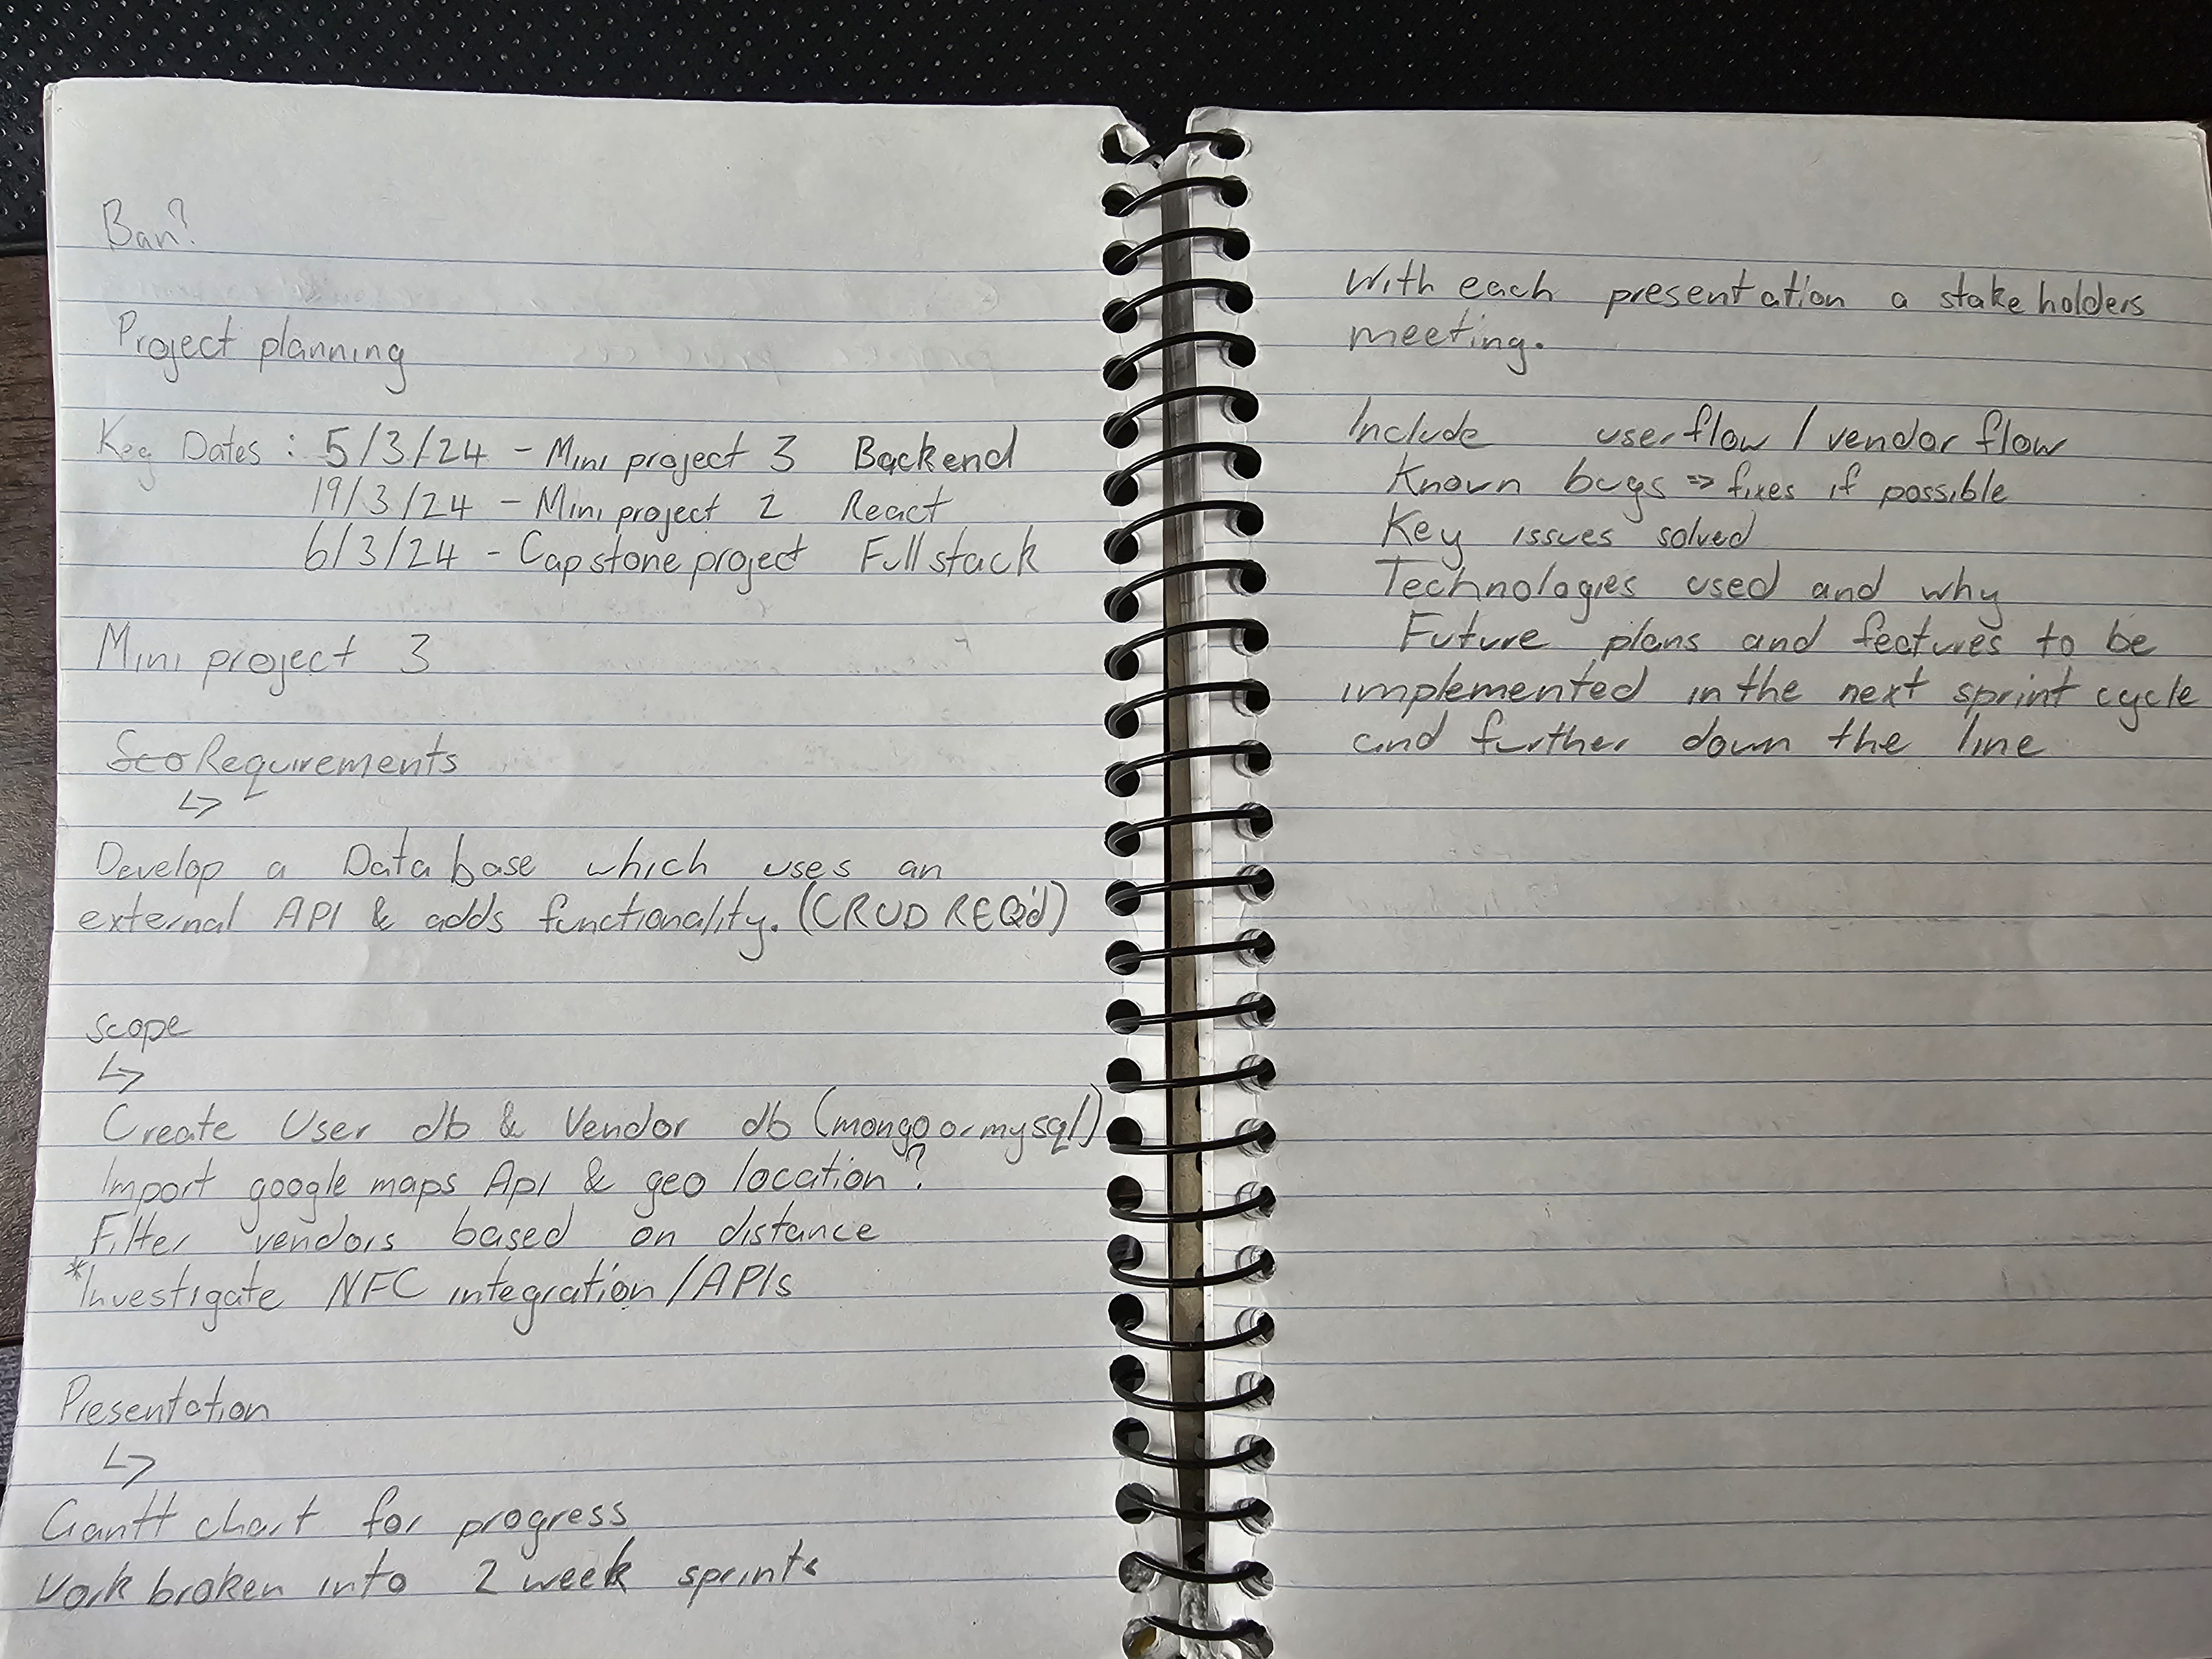 Ban?
Project planning
Key Dates : 5/3/24 - Mini project 3 Backend
19/3/24 - Mini project 2 React
6/3/24 - Capstone project Full stack
Mini project 3
Sco Requirements
↳
Develop a Data base which uses an
external API & adds functionality. (CRUD REQ'd)
scope
↳
Create User db & Vendor db (mongo or mysql)
Import google maps Api & geo location?
Filter vendors based on distance
*Investigate NFC integration/APIs
Presentation
↳
Gantt chart for progress
Work broken into 2 week sprints
With each presentation a stake holders
meeting.
Include userflow / vendor flow
Known bugs => fixes if possible
Key issues solved
Technologies used and why
Future plans and features to be
implemented in the next sprint cycle
and further down the line